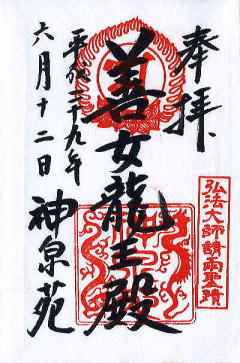 奉拝
弘法大師請雨聖蹟
善女龍王殿
平成二十九年
六月十二日
神泉苑